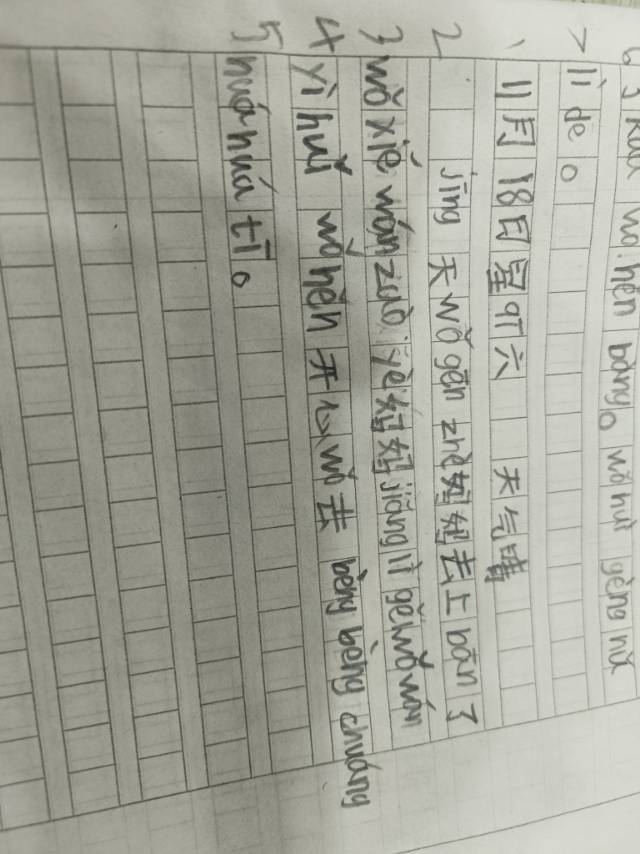 6 J Kuā wǒ hěn bàng。wǒ huì gèng nǔ
7 lì de。
1 11月18日星期六 天气晴
2 jīng 天 wǒ gēn zhe 妈妈去上 bān 了
3 wǒ xiě wán zuò yè 妈妈 jiǎng lì gěi wǒ wán
4 yì huǐ wǒ hěn 开心 wǒ 去 bèng bèng chuáng
5 huá huá tī。